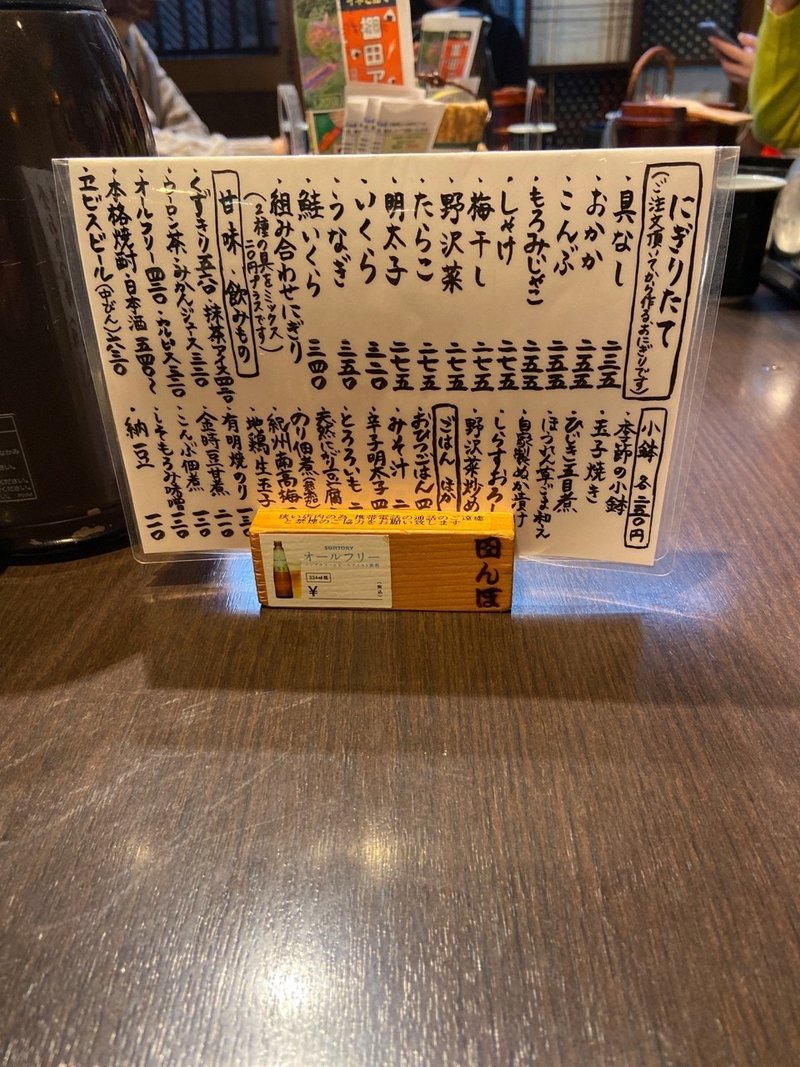 にぎりたて
(ご注文頂いてから作るおにぎりです)
・具なし 二三五
・おかか 二五五
・こんぶ 二五五
・もろみじゃこ 二五五
・しゃけ 二七五
・梅干し 二七五
・野沢菜 二七五
・たらこ 二七五
・明太子 二七五
・いくら 三二〇
・うなぎ 三五〇
・鮭いくら 三四〇
・組み合わせにぎり
(2種の具をミックス
二〇円プラスです)
甘味・飲みもの
・くずきり 五六〇・抹茶アイス 四二〇
・ウーロン茶・みかんジュース 三三〇
・オールフリー 四三〇・カルピス 三三〇
・本格焼酎・日本酒 五四〇〜
・ヱビスビール(中びん) 六三〇
小鉢 各二五〇円
・季節の小鉢
・玉子焼き
・ひじき五目煮
・ほうれん草ごま和え
・自家製めかぶ漬け
・しらすおろし
・野沢菜炒め
ごはん ほか
・おひつごはん 四
・みそ汁 二
・辛子明太子 四
・とろろいも 二
・天然にがり豆腐
・のり佃煮
・紀州南高梅
・地鶏生玉子
・有明焼のり 一三〇
・金時豆甘煮 二〇〇
・こんぶ佃煮 一三〇
・しそもろみ味噌 一三〇
・納豆 一一〇
狭い店内の為、携帯電話の通話のご遠慮
と禁煙のご協力をお願い致します
SUNTORY
オールフリー
334ml瓶
¥
(税込)
田んぼ
棚田